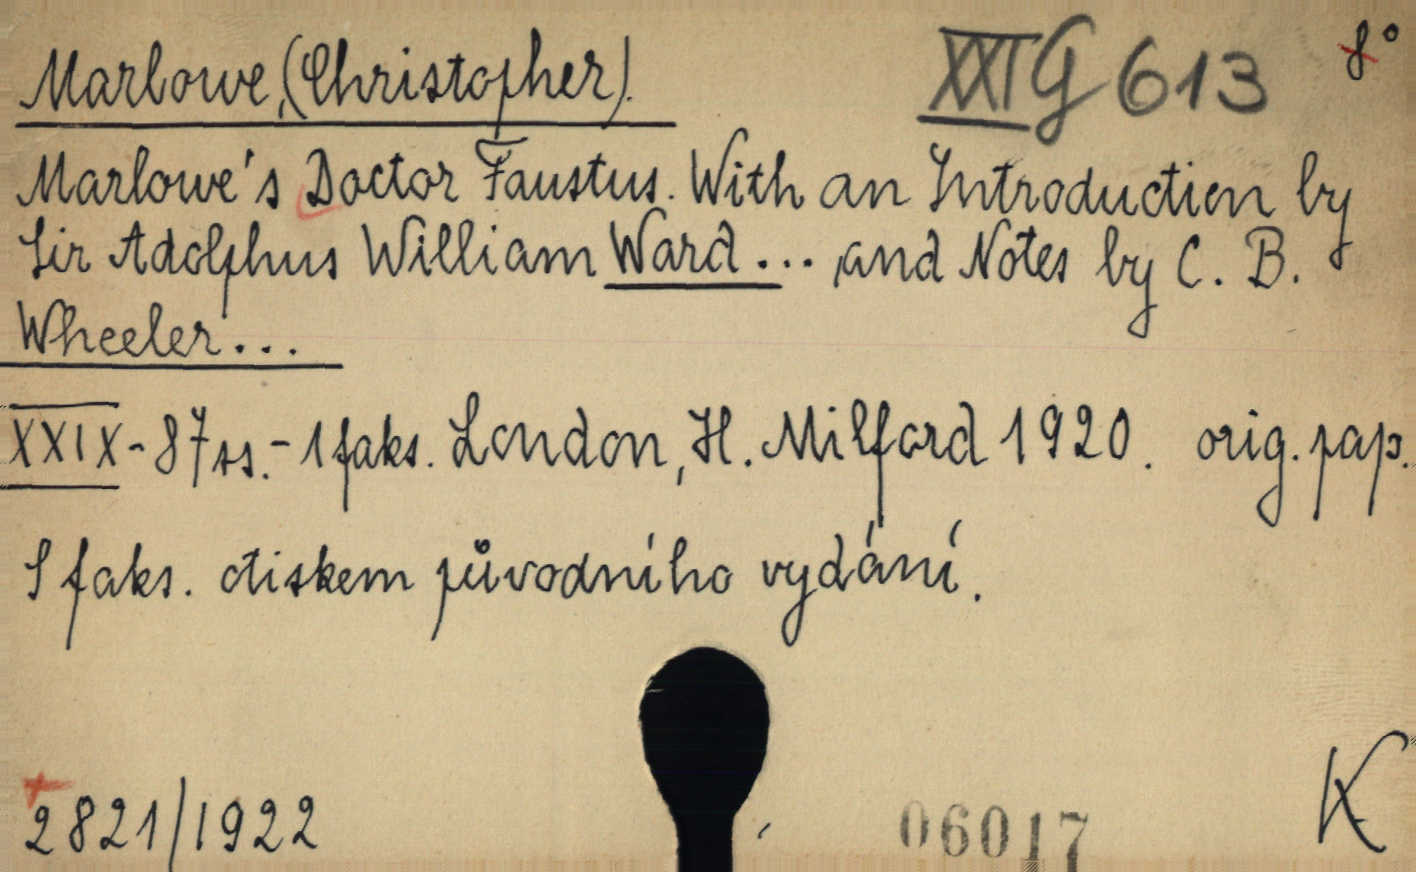 Marlowe, (Christopher).
XXI G 613
8°
Marlowe's Doctor Faustus. With an Introduction by
Sir Adolphus William Ward ... , and Notes by C. B.
Wheeler ...
XXIX - 87 ss. - 1 faks. London, H. Milford 1920. orig. pap.
S faks. otiskem původního vydání.
2821/1922
06017
K